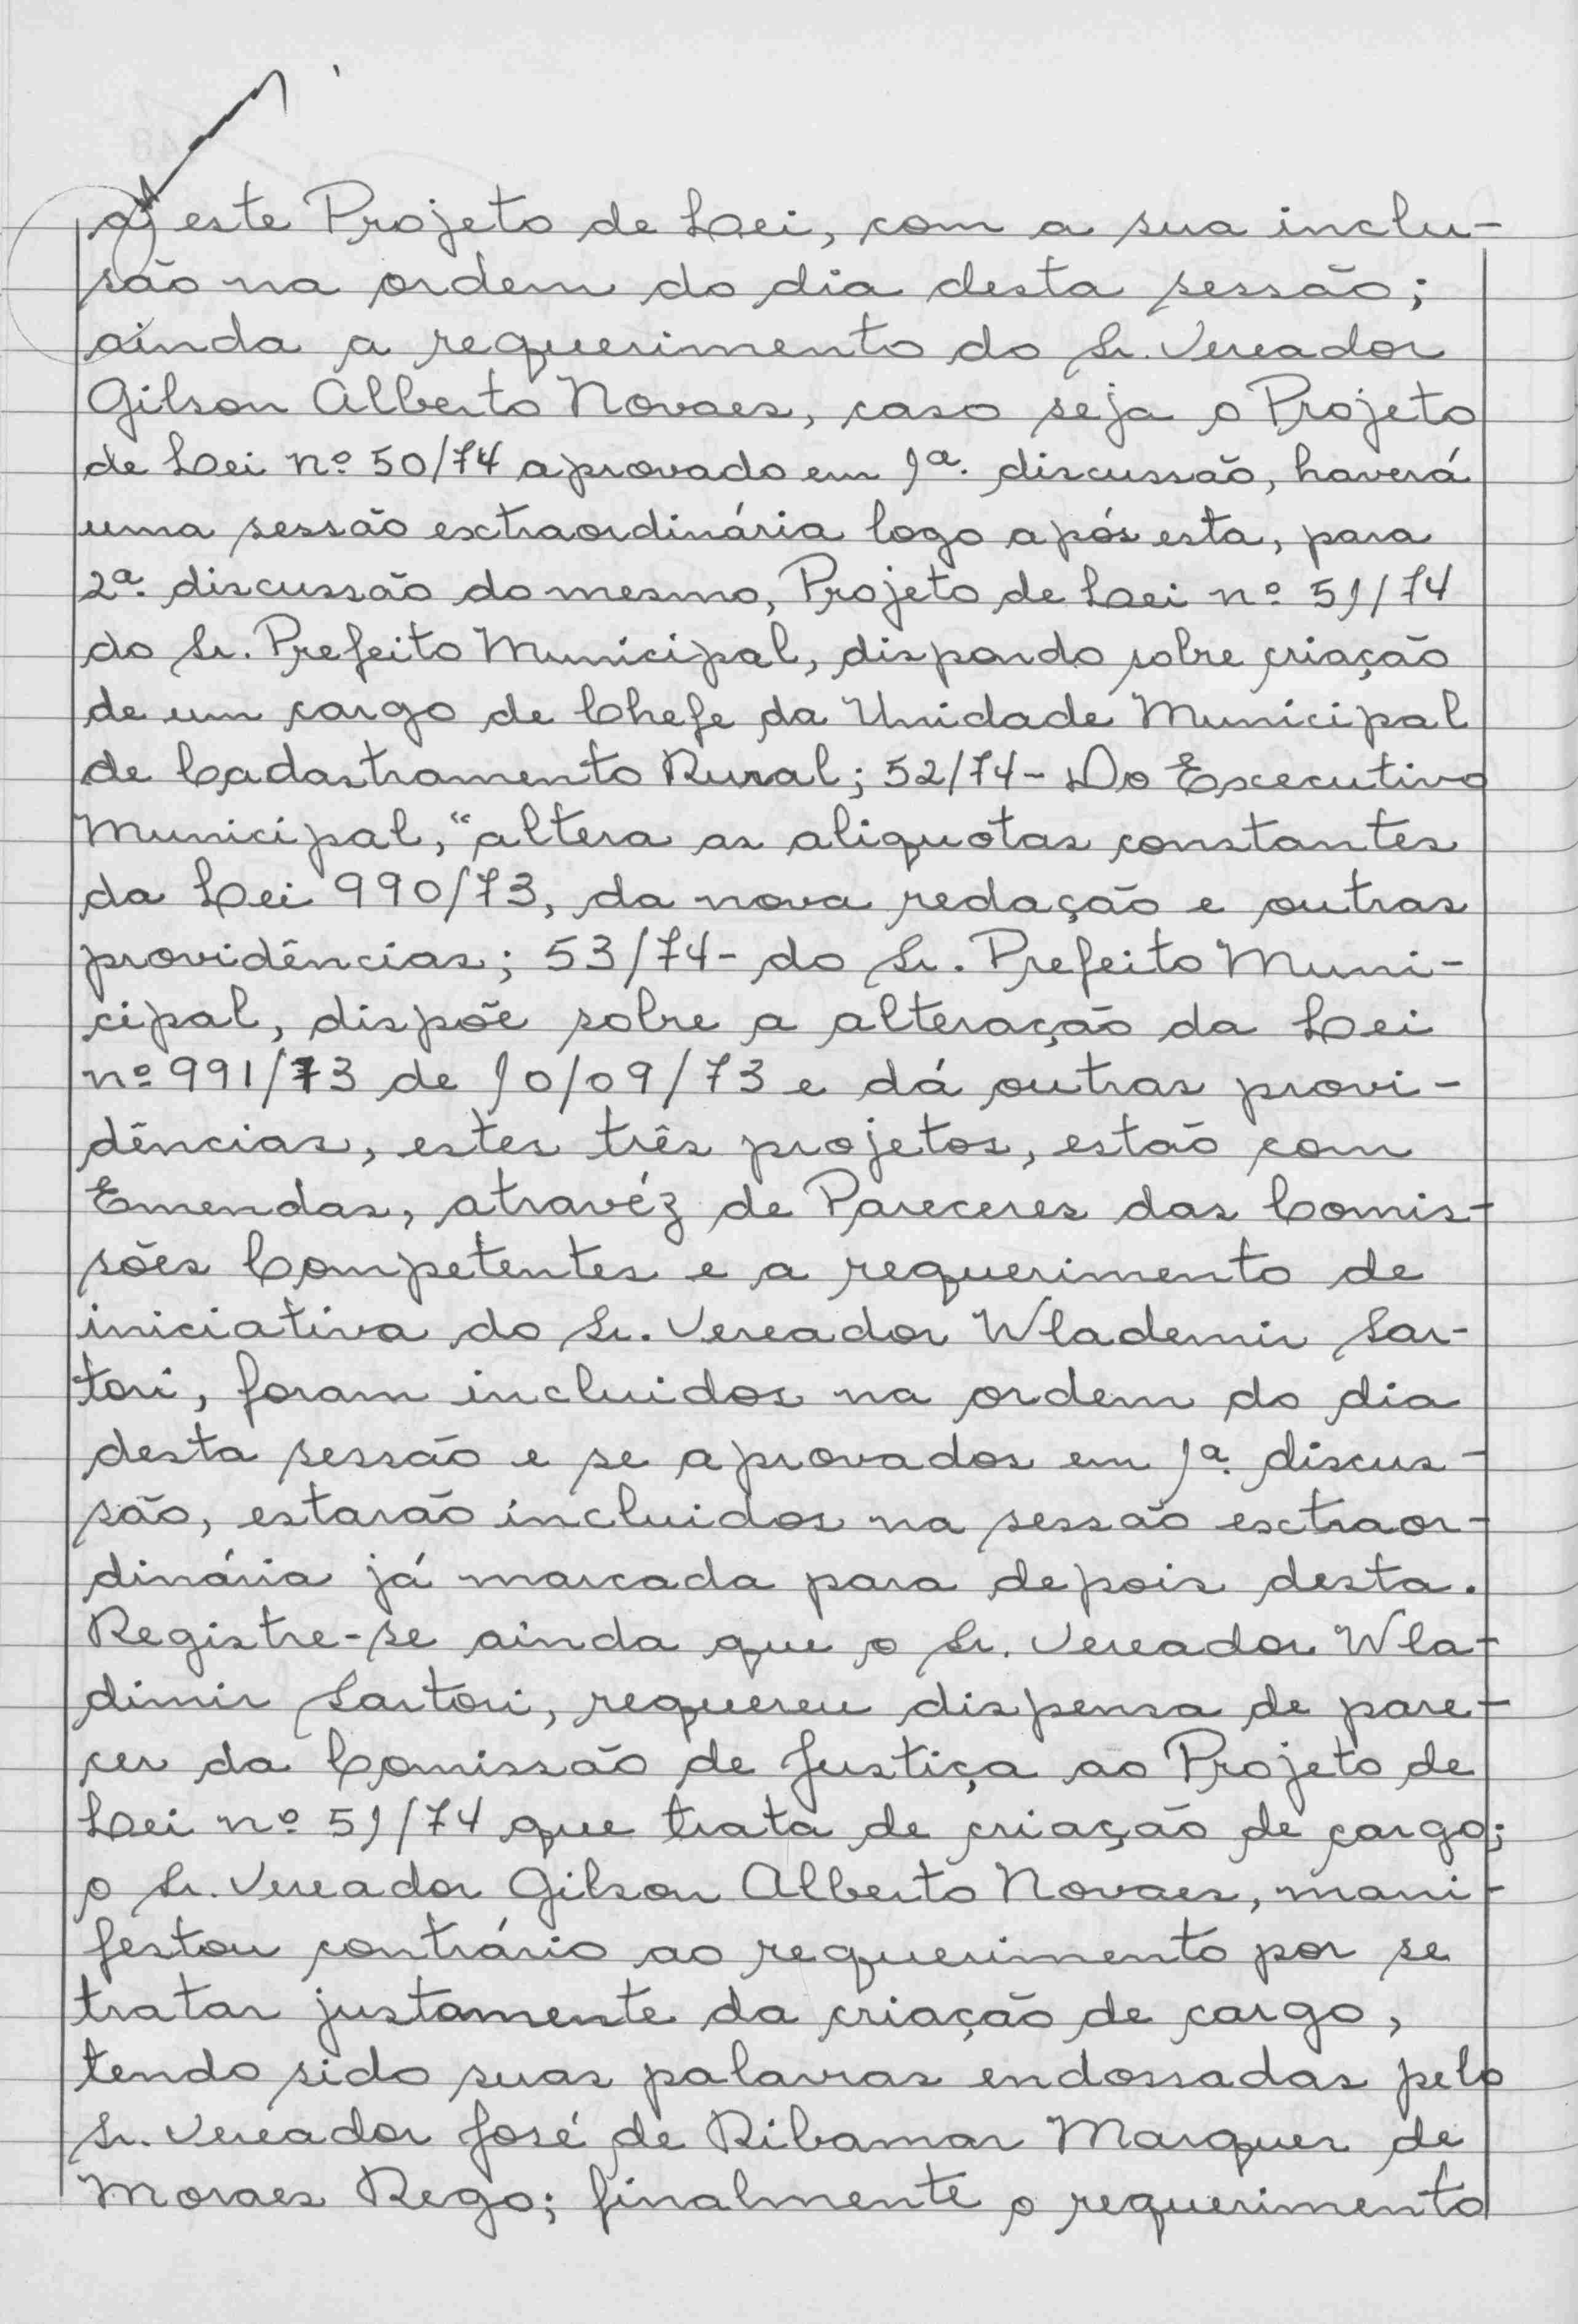 a este Projeto de Lei, com a sua inclu-
são na ordem do dia desta sessão;
ainda a requerimento do Sr. Vereador
Gilson Alberto Novaes, caso seja o Projeto
de Lei nº 50/74 aprovado em 1ª. discussão, haverá
uma sessão extraordinária logo após esta, para
2ª. discussão do mesmo, Projeto de Lei nº 51/74
do Sr. Prefeito Municipal, dispondo sobre criação
de um cargo de Chefe da Unidade Municipal
de Cadastramento Rural; 52/74- Do Executivo
Municipal, "altera as aliquotas constantes
da Lei 990/73, da nova redação e outras
providências; 53/74- do Sr. Prefeito Muni-
cipal, dispõe sobre a alteração da Lei
nº 991/73 de 10/09/73 e dá outras provi-
dências, estes três projetos, estão com
Emendas, atravéz de Pareceres das Comis-
sões Competentes e a requerimento de
iniciativa do Sr. Vereador Wlademir Sar-
tori, foram incluidos na ordem do dia
desta sessão e se aprovados em 1ª. discus-
são, estarão incluidos na sessão extraor-
dinária já marcada para depois desta.
Registre-se ainda que o Sr. Vereador Wla-
dimir Sartori, requereu dispensa de pare-
cer da Comissão de Justiça ao Projeto de
Lei nº 51/74 que trata de criação de cargo;
o Sr. Vereador Gilson Alberto Novaes, mani-
festou contrário ao requerimento por se
tratar justamente da criação de cargo,
tendo sido suas palavras endossadas pelo
Sr. Vereador José de Ribamar Marques de
Moraes Rego; finalmente o requerimento